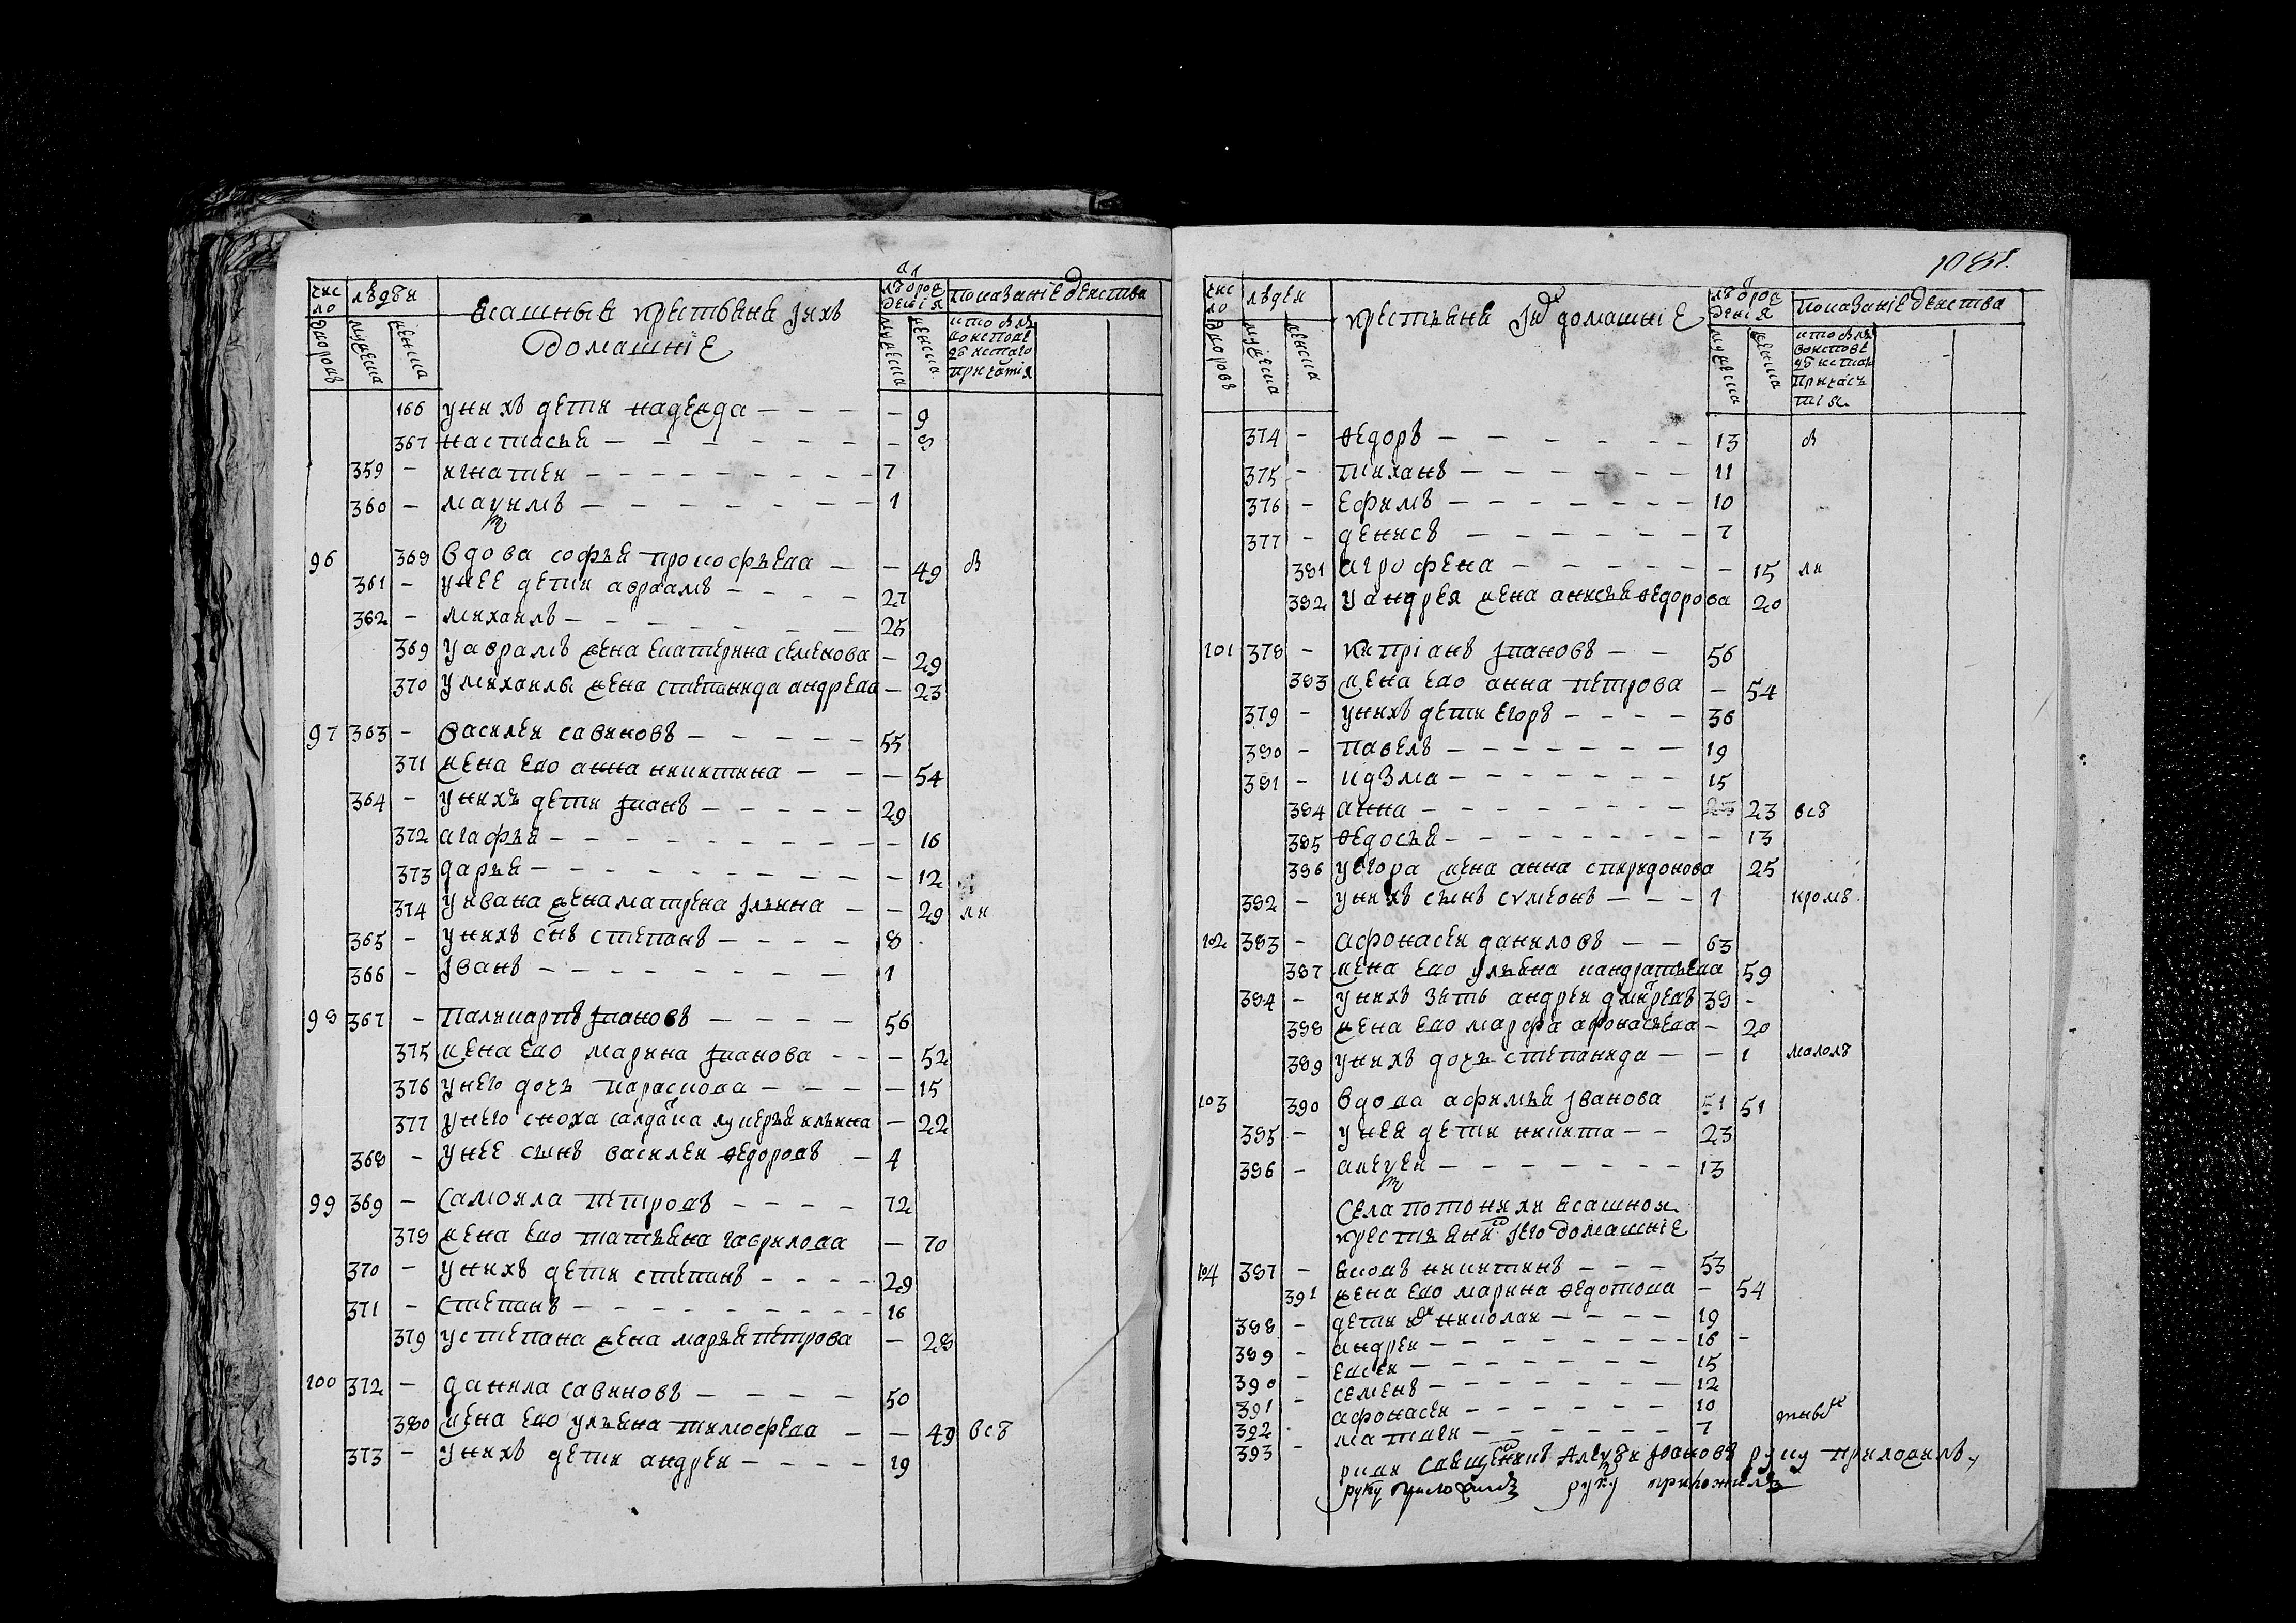 чис ло
людеи
ясашныя крестьяня и ихъ
домашнiе
лъ о рож денiя
показанiе деиства
дворовъ
мужеска
женска
мужеска
женска
166 у нихъ дети надежда — — — — 9
367 настасья — — — — — — — 8
359 — игнатеи — — — — — — — 7
360 — маѯимъ — — — — — — — 1
96 368 вдова софья прокофьева — — 49 в
361 — у нее дети авраамъ — — — — 27
362 — михаилъ — — — — — — 25
369 у аврамъ жена екатерина семенова — 29
370 у михаилы жена степанида андрева — 23
97 363 — василеи савиновъ — — — — — 55
371 жена ево анна никитина — — — 54
364 — у нихъ дети иванъ — — — — — 29
372 агафья — — — — — — — — — 16
373 дарья — — — — — — — — — 12
374 у ивана жена матрена ильина — — 29 ли
365 — у нихъ снъ степанъ — — — — 8
366 — иванъ — — — — — — — — 1
98 367 — паликарпъ ивановъ — — — — 56
375 жена ево марина иванова — — — 52
376 у него дочь параскова — — — — 15
377 у него сноха салдатка лукерья ильина — 22
368 — у нее сынъ василеи ѳедоровъ — 4
99 369 — самоила петровъ — — — — 72
378 жена ево татьяна гаврилова — 70
370 — у нихъ дети степанъ — — — — 29
371 — степанъ — — — — — — — — — 16
379 у степана жена марья петрова — 28
100 372 — данила савиновъ — — — — 50
380 жена ево ульяна тимофева — — 49 всѣ
373 — у нихъ дети андреи — — — — 19
1031.
чис ло
людеи
крестьяня и их домашнiе
лъ о рож денiя
показанiе деиства
дворовъ
мужеска
женска
мужеска
женска
374 — ѳедоръ — — — — — — 13 в
375 — тиханъ — — — — — — 11
376 — ефимъ — — — — — — — 10
377 — денисъ — — — — — — 7
381 агрофена — — — — — — — 15 ли
382 у андрея жена анисья ѳедорова 20
101 378 — киприанъ ивановъ — — 56
383 жена ево анна петрова — 54
379 — у нихъ дети егоръ — — — — 36
380 — павелъ — — — — — — — 19
381 — кузма — — — — — — — 15
384 анна — — — — — — — — 23 всѣ
385 ѳедосья — — — — — — — — — 13
386 у егора жена анна спиридонова 25
382 — у нихъ сынъ сѵмеонъ — — — 1 кромѣ
102 383 — афонасеи даниловъ — — 63
387 жена ево ульяна кандратьева 59
384 — у нихъ зять андреи дмитревъ 38 —
388 жена ево марфа афонасьева — 20
389 у нихъ дочь степанида — — 1 малолѣ
103 390 вдова афимья иванова 51 51
385 — у нея дети никита — — 23
386 — алеѯеи — — — — — — — 13
села потонихи ясашнои
крестьянинъ и его домашнiе
104 387 — яковъ никитинъ — — — 53
391 жена ево марина ѳедотова — 54
388 — дети их николаи — — — — 19
389 — андреи — — — — — — — — 16 —
390 — евсеи — — — — — — — 15
391 — семенъ — — — — — — — 12
392 — афонасеи — — — — — — 10
393 — матвеи — — — — — — 7
священникъ алеѯеи ивановъ руку приложилъ
руку приложилъ руку приложилъ